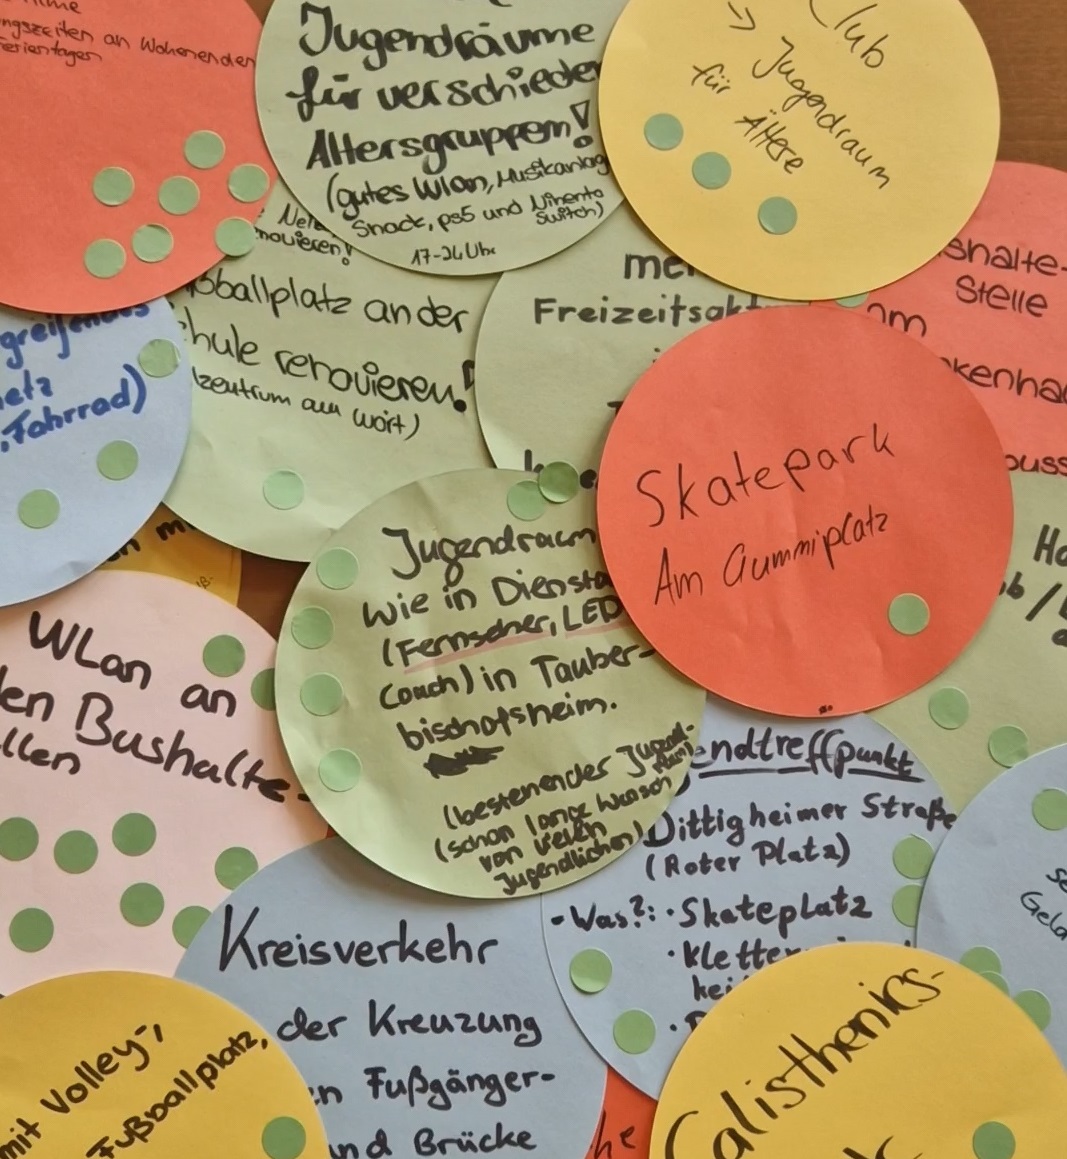 ngszeiten an Wohenenden
Jugendräume
für verschieden
Altersgruppen!
(gutes Wlan, Musikanlag
Snack, ps5 und Ninento
Switch)
17-24 Uhr
Club
→ Jugendraum
für Ältere
novieren!
ßballplatz an der
hule renovieren!
lzentrum am Wört)
greifendes
netz
Fahrrad)
Freizeitsakt
shalte-
Stelle
am
kenha
buss
Skatepark
Am Gummiplatz
Jugendraum
Wie in Diensta
(Fernseher, LED
Couch) in Tauber-
bischofsheim.
(bestehender Jugend-
(schon lange Wunsch
von vielen
Jugendlichen)
WLan an
den Bushalte-
llen
endtreffpunkt
Dittigheimer Straße
(Roter Platz)
- Was?: · Skateplatz
· Klette
kei
Kreisverkehr
der Kreuzung
n Fußgänger-
nd Brücke
he
mit Volley-,
Fußballplatz,
Calisthenics-